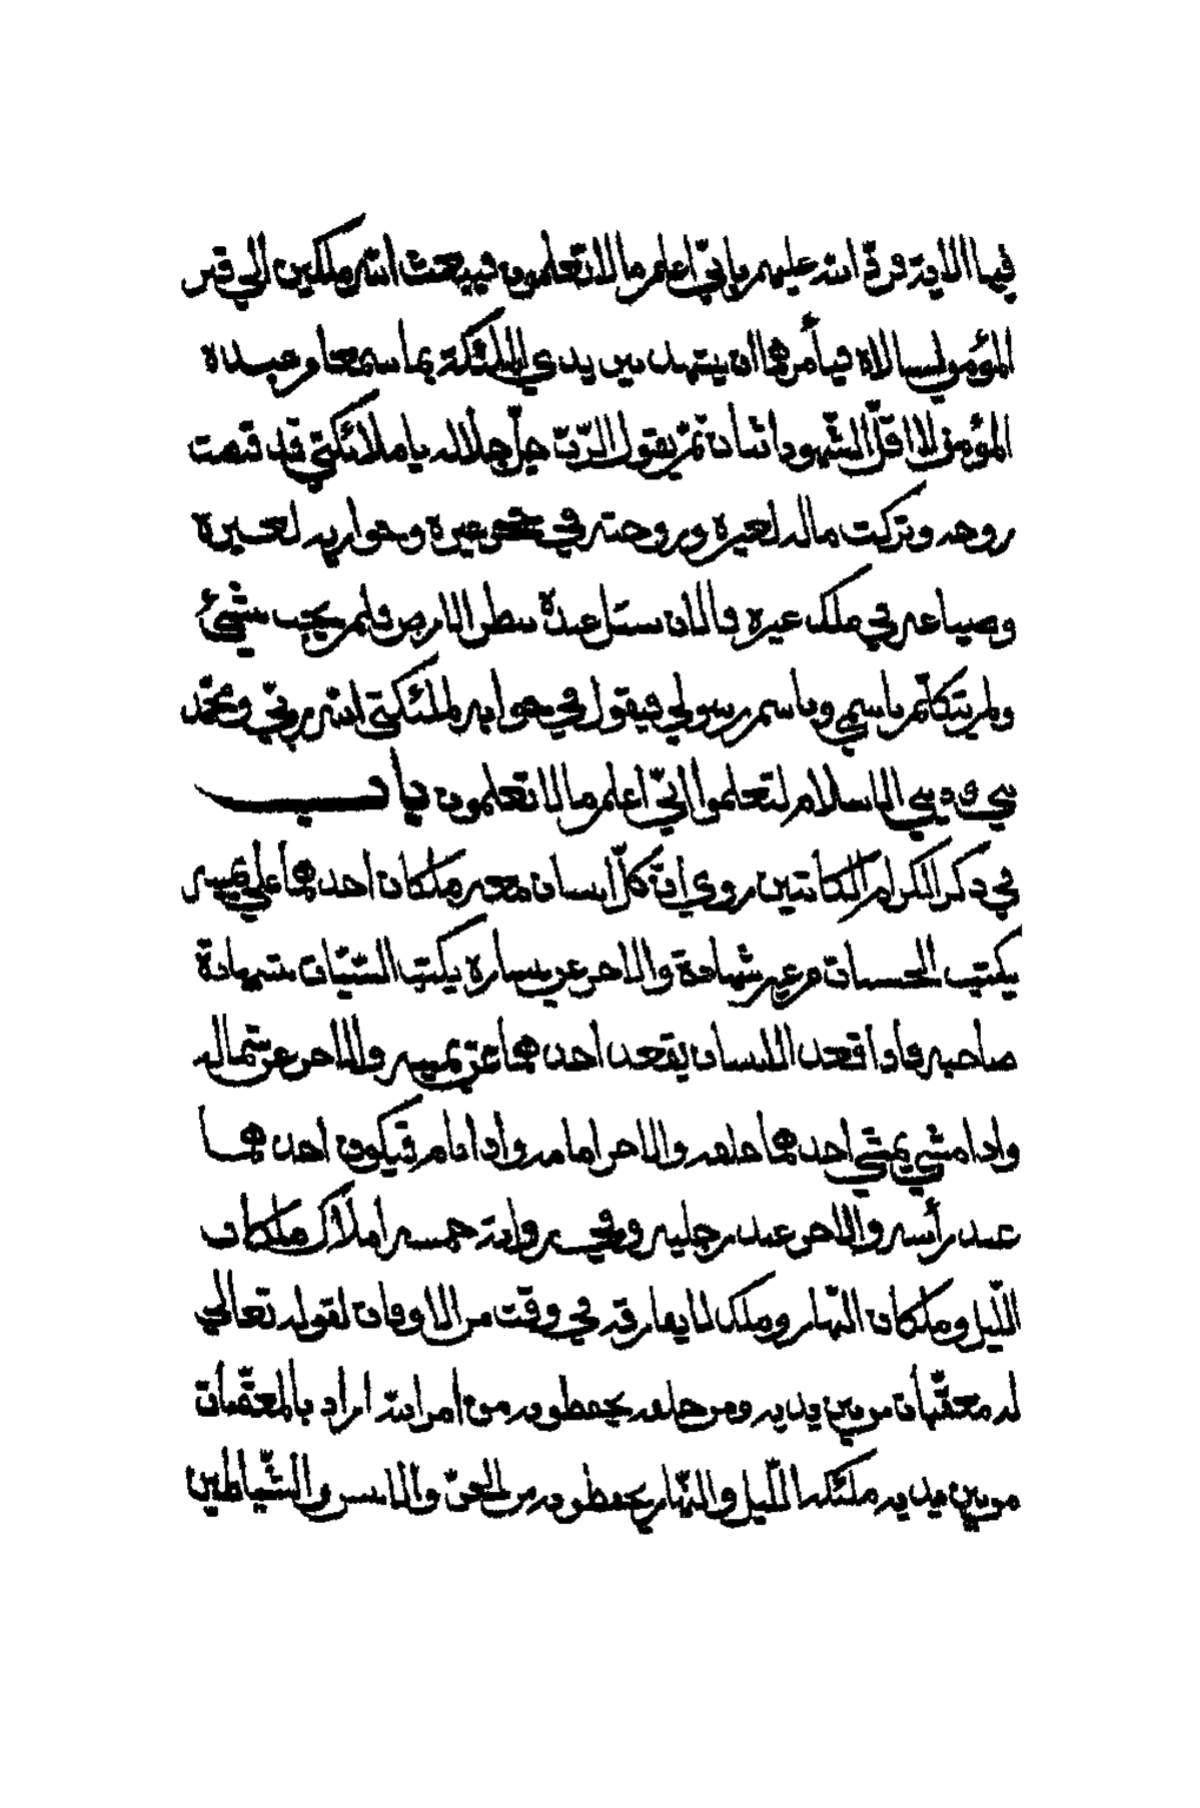 فيها الاية فردّ الله عليهم بانّي اعلم ما لا تعلمون فيبعث الله ملكين الي قبر
المؤمن ليسالاه فيأمرهما ان يشهد بين يدي الملئكة بما سمعنا من عبده
المؤمن لان اقلّ الشّهود اثنان ثمّ يقول الرّبّ جلّ جلاله يا ملائكتي قد قبضت
روحه وتركت ماله لغيره وزوجته في حجر غيره وجواريه لغيره
وضياعه في ملك غيره فالان سئل عبدي بطن الارض فلم يجب شيئ
ولم يتكلّم باسمي وباسم رسولي فيقول في جوابه لملئكتي الله ربّي ومحمّد
نبيي وديني الاسلام لتعلموا انّي اعلم ما لا تعلمون باب
في ذكر الكرام الكاتبين روي انّ كلّ انسان معه ملكان احدهما علي يمينه
يكتب الحسنات من غير شهادة والاخر عن يساره يكتب السّيّات بشهادة
صاحبه فاذا قعد الانسان يقعد احدهما عن يمينه والاخر عن شماله
واذا مشي يمشي احدهما خلفه والاخر امامه واذا نام فيكون احدهما
عند رأسه والاخر عند رجليه وفي رواية خمسه املاك ملكان
اللّيل وملكان النّهار وملك لا يفارقه في وقت من الاوقات لقوله تعالي
له معقّبات من بين يديه ومن خلفه يحفظونه من امر الله اراد بالمعقّبات
من بين يديه ملئكة اللّيل والنّهار يحفظونه من الجنّ والانس والشّياطين